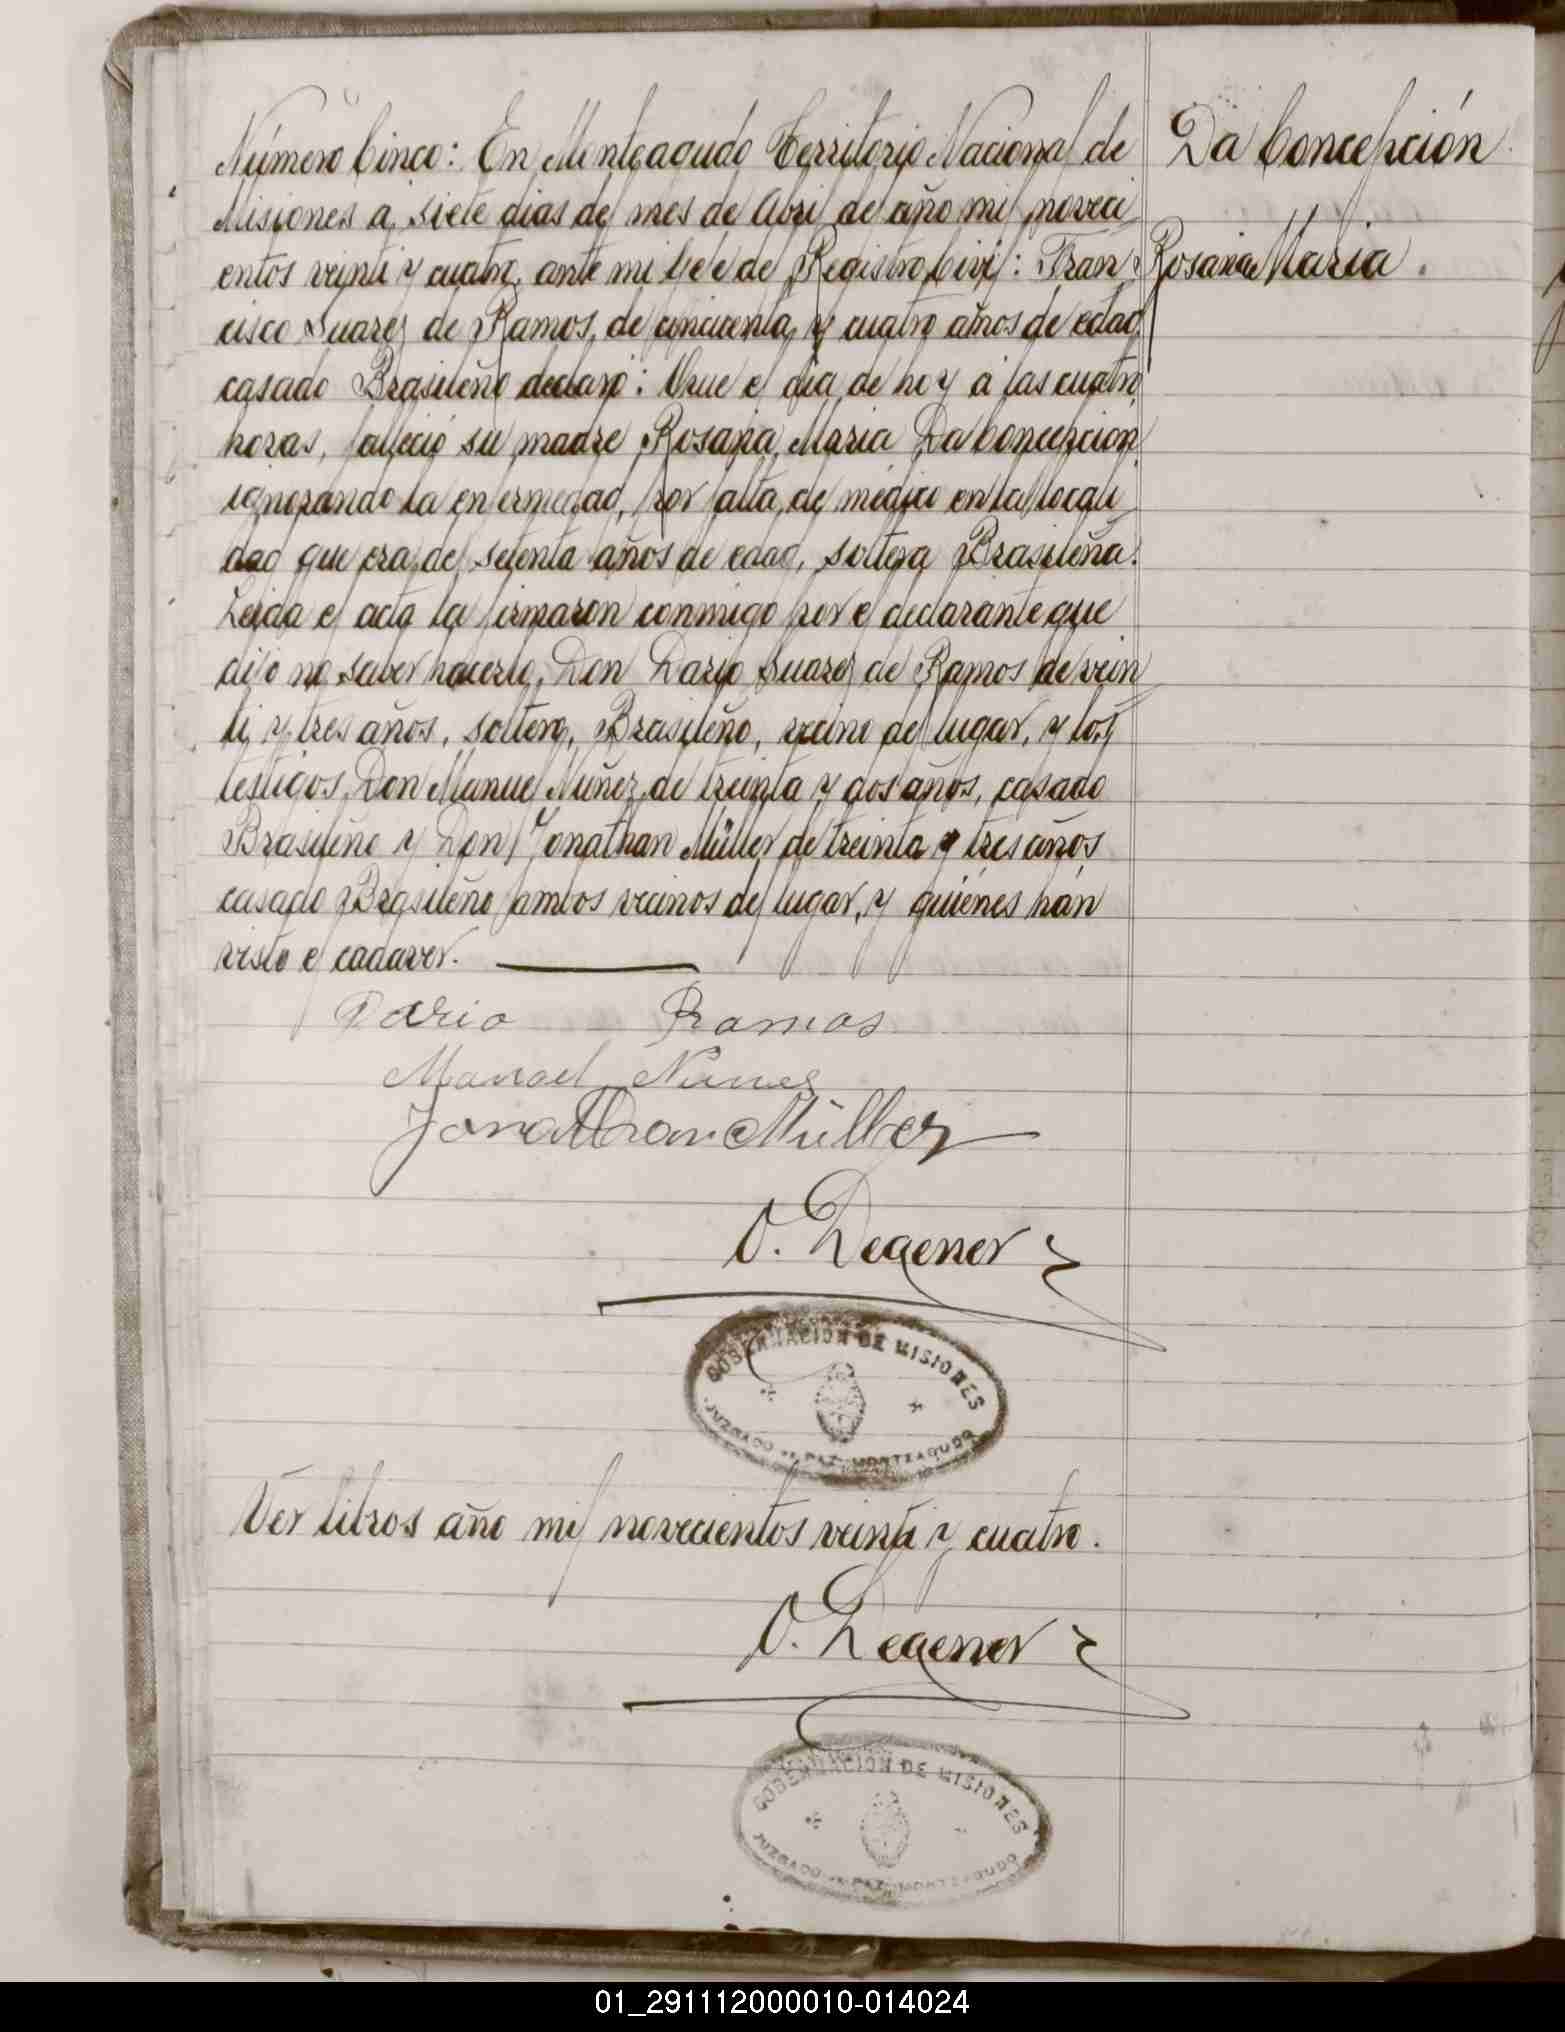 Número Cinco: En Monteagudo Territorio Nacional de
Misiones a siete dias del mes de Abril del año mil noveci
entos veinti y cuatro, ante mi Jefe del Registro Civil: Fran
cisco Suarez de Ramos, de cincuenta y cuatro años de edad,
casado Brasileño declaró: Que el dia de hoy á las cuatro
horas, falleció su madre Rosaria Maria Da Concepcion
ignorando la enfermedad, por falta de médico en la locali
dad que era de setenta años de edad, soltera Brasileña.
Leida el acta la firmaron conmigo por el declarante que
dijo no saber hacerlo, Don Dario Suarez de Ramos de vein
ti y tres años, soltero, Brasileño, vecino del lugar, y los
testigos Don Manuel Nuñez de treinta y dos años, casado
Brasileño y Don Jonathan Müller de treinta y tres años
casado Brasileño ambos vecinos del lugar, y quiénes han
visto el cadaver.
Da Concepción
Rosaria Maria.
Dario Ramos
Manoel Nunes
Jonathan Müller
O. Degener
GOBERNACION DE MISIONES
JUZGADO DE PAZ MONTEAGUDO
Ver libros año mil novecientos veinti y cuatro.
O. Degener
GOBERNACION DE MISIONES
JUZGADO DE PAZ MONTEAGUDO
01_291112000010-014024